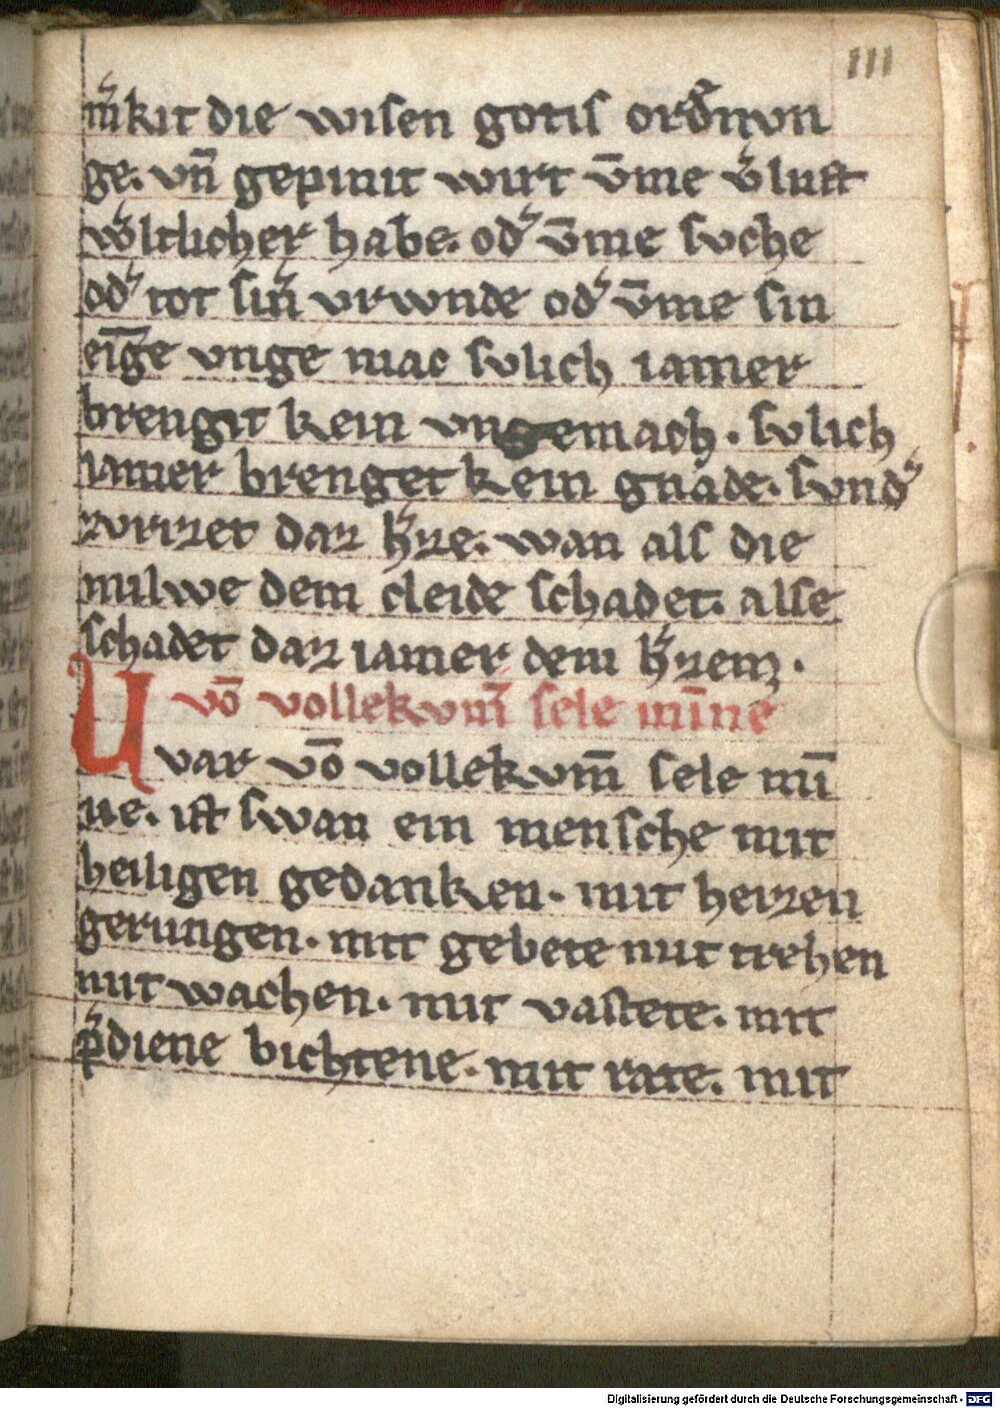 111
m̉kit die wisen gotis ord̉nvn
ge. vn̄ gepinit wirt v̄me v̉lust
w̉ltlicher habe. od̉ v̄me svche
od̉ tot sin̉ vrwnde od̉ v̄me sin
eīge vnge mac svlich iamer
brengit kein vngemach. svlich
iamer brenget kein gnade. svnd̉
zvrzet daz h̉ze. wan als die
milwe dem cleide schadet. alse
schadet daz iamer dem h̉zem.
vō vollekvm̄ sele min̄ne
Uvar vō vollekvm̄ sele mī
ne. ist swan ein mensche mit
heiligen gedanken. mit herzen
gerungen. mit gebete mit trehen
mit wachen. mit vastete. mit
p̉diene bichtene. mit rate. mit
Digitalisierung gefördert durch die Deutsche Forschungsgemeinschaft - DFG